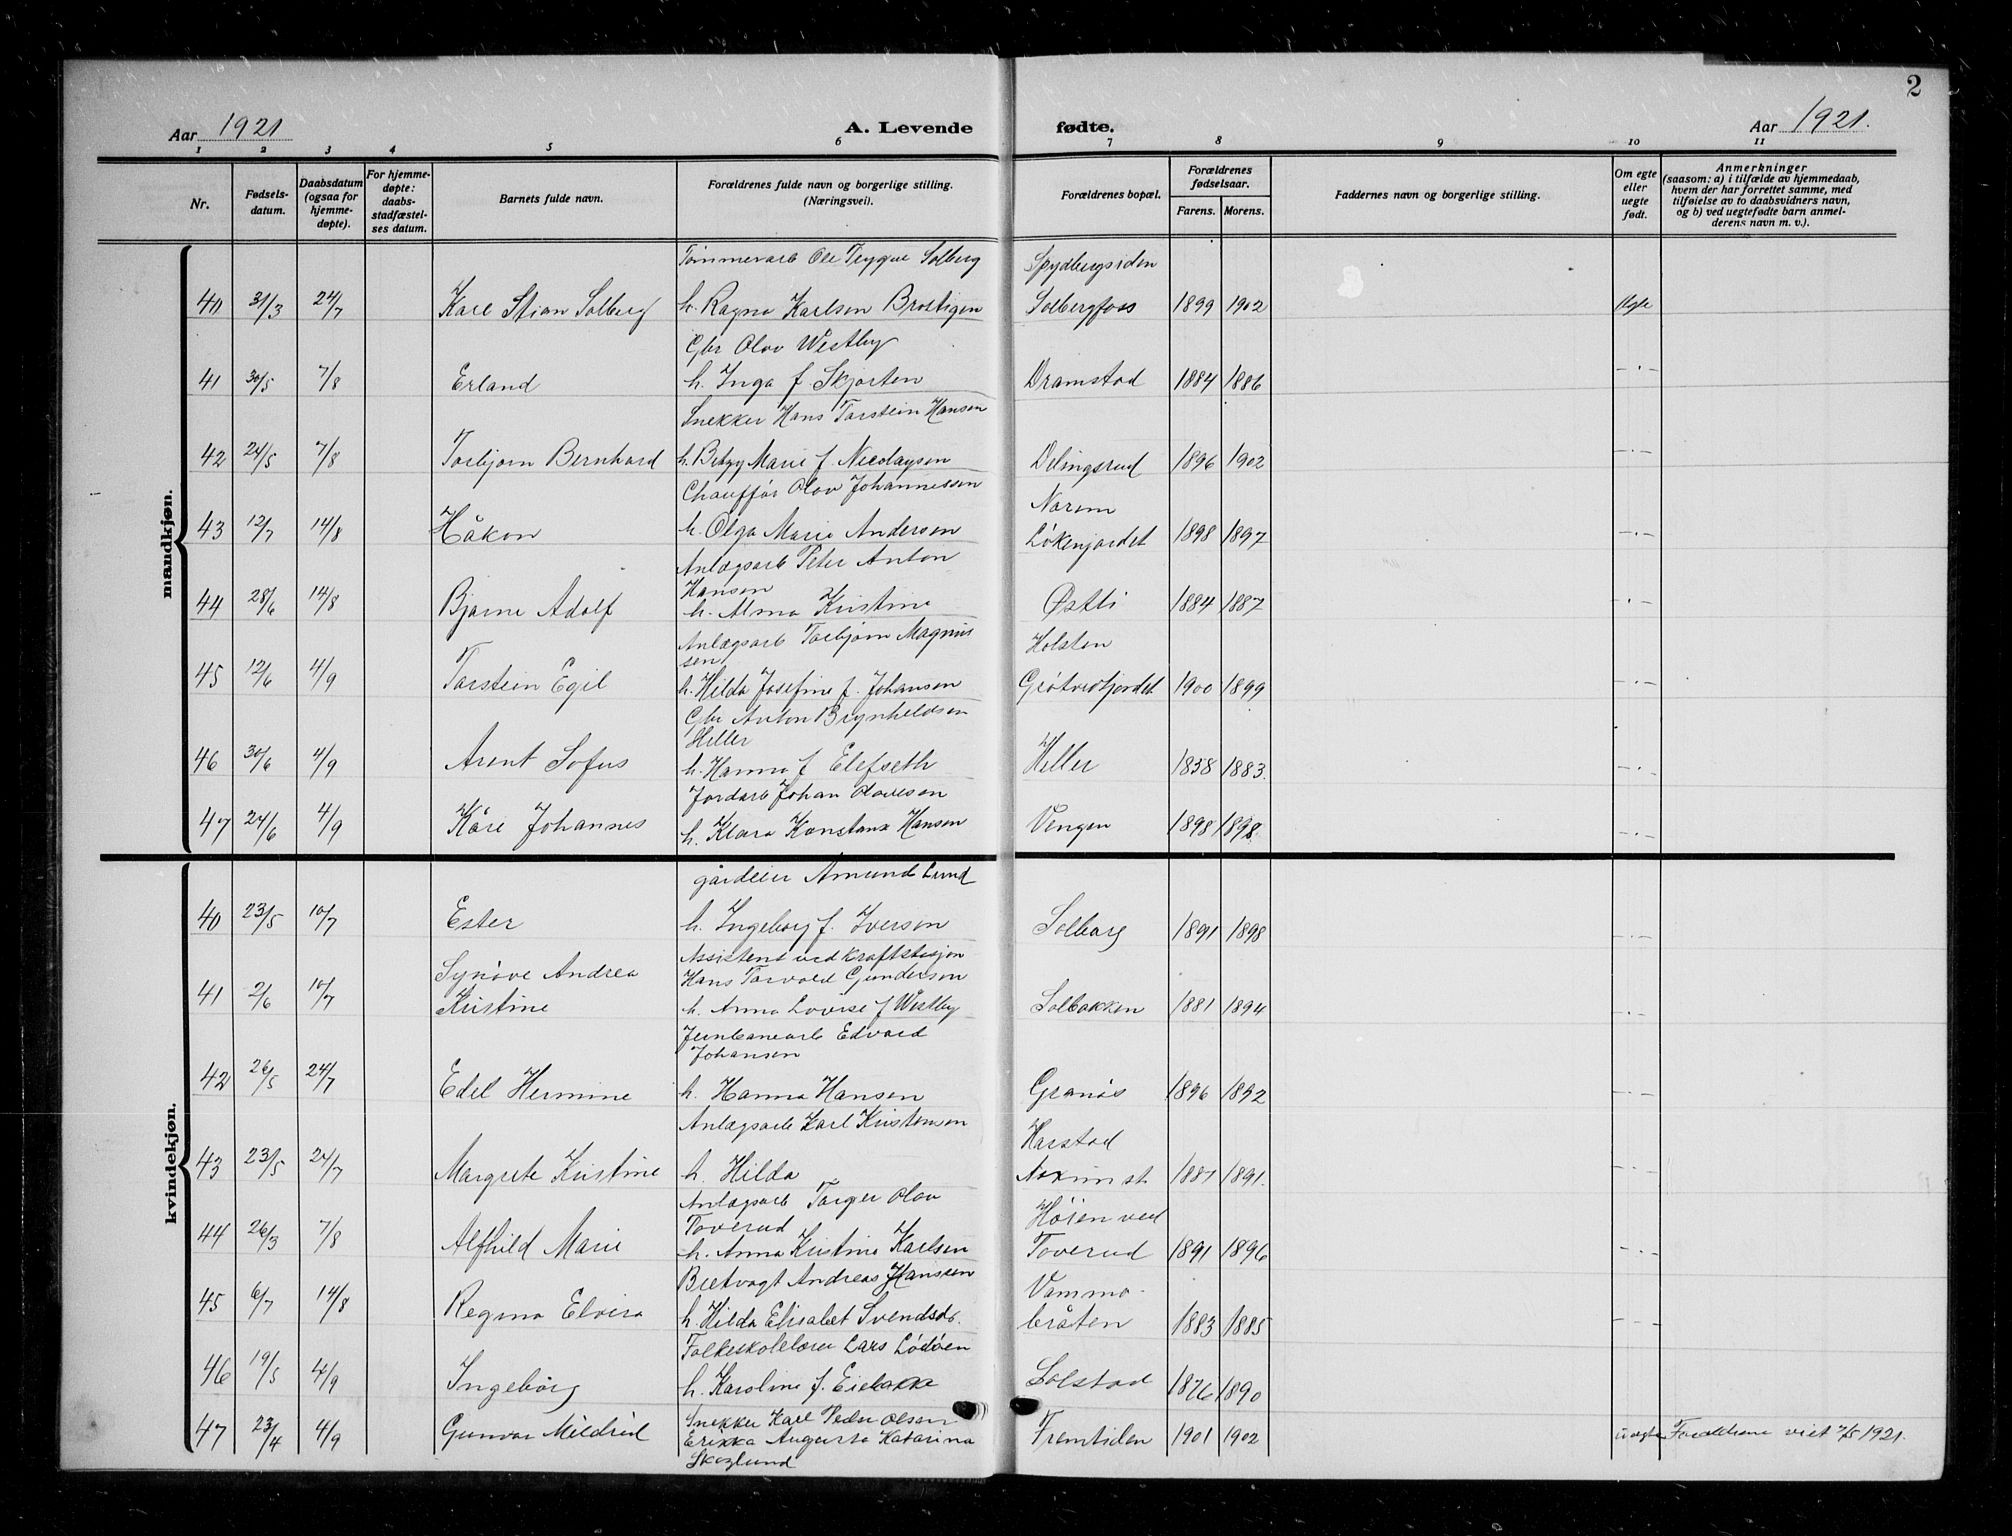 2
Aar 1921 A. Levende fødte. Aar 1921.
1 2 3 4 5 6 7 8 9 10 11
Nr. Fødsels-datum. Daabsdatum (ogsaa for hjemme-døpte). For hjemme-døpte: daabs-stadfæstel-ses datum. Barnets fulde navn. Forældrenes fulde navn og borgerlige stilling. (Næringsvei). Forældrenes bopæl. Forældrenes fødselsaar. Farens. Morens. Faddernes navn og borgerlige stilling. Om egte eller uegte født. Anmerkninger (saasom: a) i tilfælde av hjemmedaab, hvem der har forrettet samme, med tilføielse av to daabsvidners navn, og b) ved uegtefødte barn anmel-derens navn m. v.).
mandkjøn.
Tømmerarb Ole Trygve Solberg Spydbergsiden
40 31/3 24/7 Karl Stian Solberg h. Ragna Karlsen Brostigen Solbergfoss 1899 1902 Egte
Gbr Olav Westby
41 30/5 7/8 Erland h. Inga f. Skjorten Dramstad 1884 1886 -.-
Snekker Hans Torstein Hansen
42 24/5 7/8 Torbjørn Bernhard h. Betzy Marie f. Nicolaysen Delingsrud 1896 1902 -.-
Chauffør Olav Johannessen Narem
43 12/7 14/8 Håkon h. Olga Marie Andersen Løkenjordet 1898 1897 -.-
Anlægsarb Peter Anton
Hansen
44 28/6 14/8 Bjarne Adolf h. Alma Kristine Østli 1884 1887 -.-
Anlægsarb Torbjørn Magnus Holsten
sen
45 12/6 4/9 Torstein Egil h. Hilda Josefine f. Johansen Grøtvedtjordet 1900 1899 -.-
Gbr Anton Brynheldsen
Heller
46 30/6 4/9 Arent Sofus h. Hanna f Elefseth Heller 1858 1883. -.-
Jordarb Johan Olavesen
47 24/6 4/9 Kåre Johannes h. Klara Konstanse Hansen Vengen 1898 1898. -.-
kvindekjøn.
gårdeier Amund Lund
40 23/5 10/7 Ester h. Ingeborg f. Iversen Solberg 1891 1898 -.-
Assistent ved kraftstasjon
Synøve Andrea Hans Torvald Gundersen
41 2/6 10/7 Kristine h. Anna Lovise f Westby Solbakken 1881 1894 -.-
Jernbanearb Edvard
Johansen
42 26/5 24/7 Edel Hermine h. Hanna Hansen Granås 1896 1892 -.-
Anlægsarb Karl Kristensen Harstad
43 23/5 24/7 Margrete Kristine h. Hilda 1887 1891. -.-
Anlægsarb Torger Olav Høien ved
Toverud
44 26/3 7/8 Alfhild Marie h. Anna Kristine Karlsen Toverud 1891 1896 -.-
Bretvagt Andreas Hansen Vammo-
45 6/7 14/8 Regina Elvira h Hilda Elisabet Svendsdr. bråten 1883 1885 ---
Folkeskolelærer Lars Lødøen
46 19/5 4/9 Ingebørg h. Karoline f. Eiebakke Solstad 1876 1890
47 23/4 4/9 Gunvor Mildrid Snekker Karl Peder Olsen Fremtiden 1901 1902 uegte Forældrene viet 7/5 1921.
Erikka Augusta Katarina
Skoglund